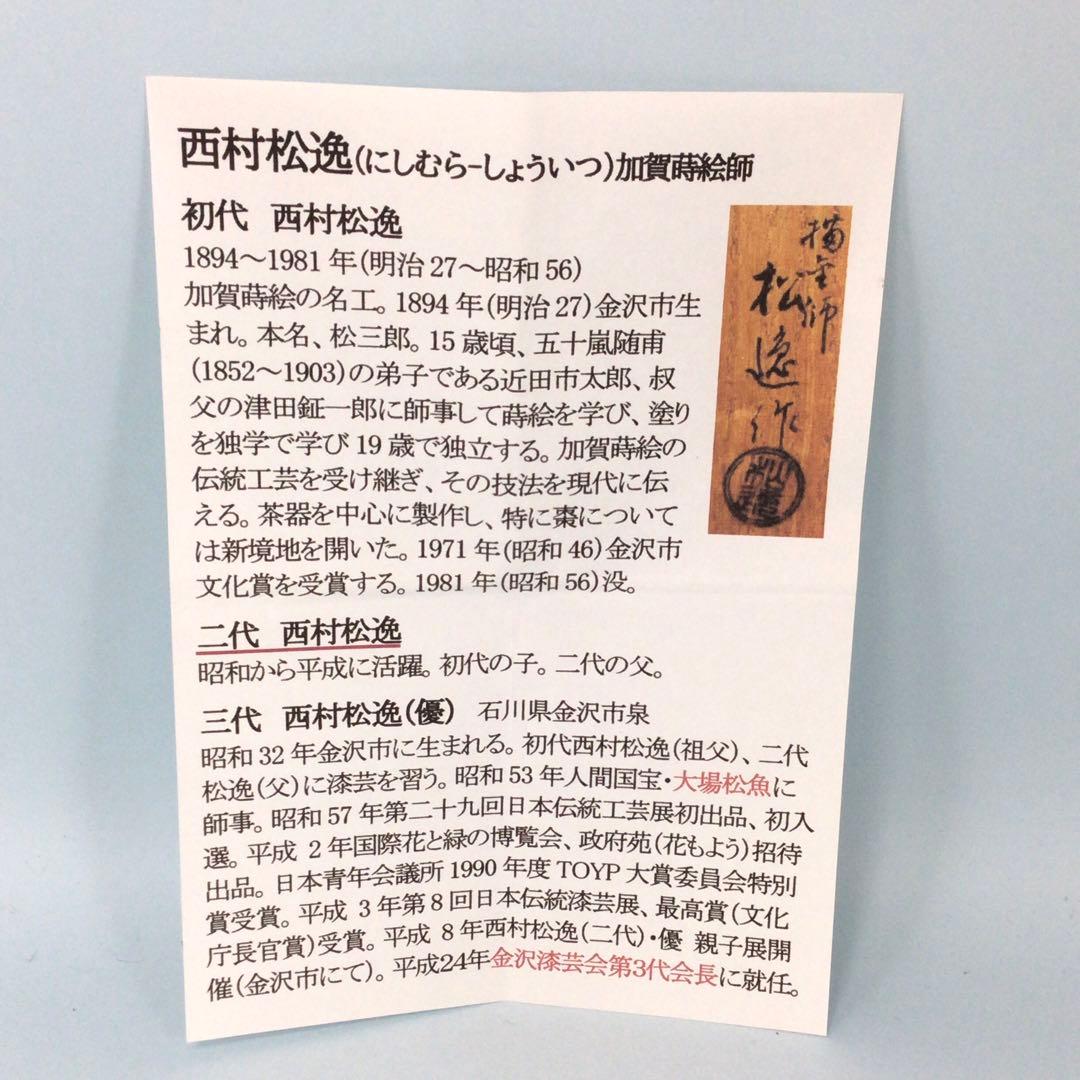 西村松逸(にしむら-しょういつ)加賀蒔絵師
初代 西村松逸
1894～1981年(明治27～昭和56)
加賀蒔絵の名工。1894年(明治27)金沢市生
まれ。本名、松三郎。15歳頃、五十嵐随甫
(1852～1903)の弟子である近田市太郎、叔
父の津田鉦一郎に師事して蒔絵を学び、塗り
を独学で学び19歳で独立する。加賀蒔絵の
伝統工芸を受け継ぎ、その技法を現代に伝
える。茶器を中心に製作し、特に棗について
は新境地を開いた。1971年(昭和46)金沢市
文化賞を受賞する。1981年(昭和56)没。
描金師
松逸作
二代 西村松逸
昭和から平成に活躍。初代の子。二代の父。
三代 西村松逸(優) 石川県金沢市泉
昭和32年金沢市に生まれる。初代西村松逸(祖父)、二代
松逸(父)に漆芸を習う。昭和53年人間国宝・大場松魚に
師事。昭和57年第二十九回日本伝統工芸展初出品、初入
選。平成 2年国際花と緑の博覧会、政府苑(花もよう)招待
出品。日本青年会議所1990年度TOYP大賞委員会特別
賞受賞。平成 3年第8回日本伝統漆芸展、最高賞(文化
庁長官賞)受賞。平成 8年西村松逸(二代)・優 親子展開
催(金沢市にて)。平成24年金沢漆芸会第3代会長に就任。